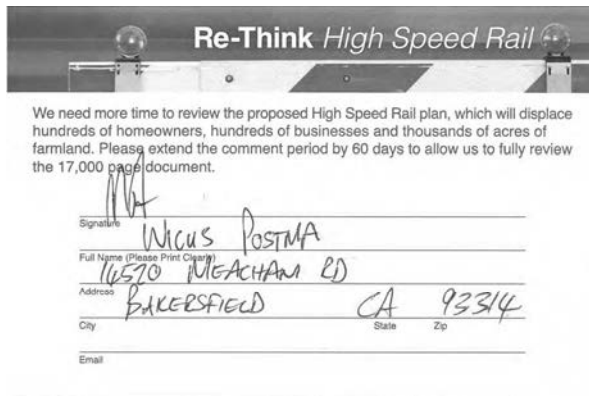 Re-Think High Speed Rail
We need more time to review the proposed High Speed Rail plan, which will displace
hundreds of homeowners, hundreds of businesses and thousands of acres of
farmland. Please extend the comment period by 60 days to allow us to fully review
the 17,000 page document.
Signature
WICUS POSTMA
Full Name (Please Print Clearly)
14570 MEACHAM RD
Address
BAKERSFIELD CA 93314
City State Zip
Email